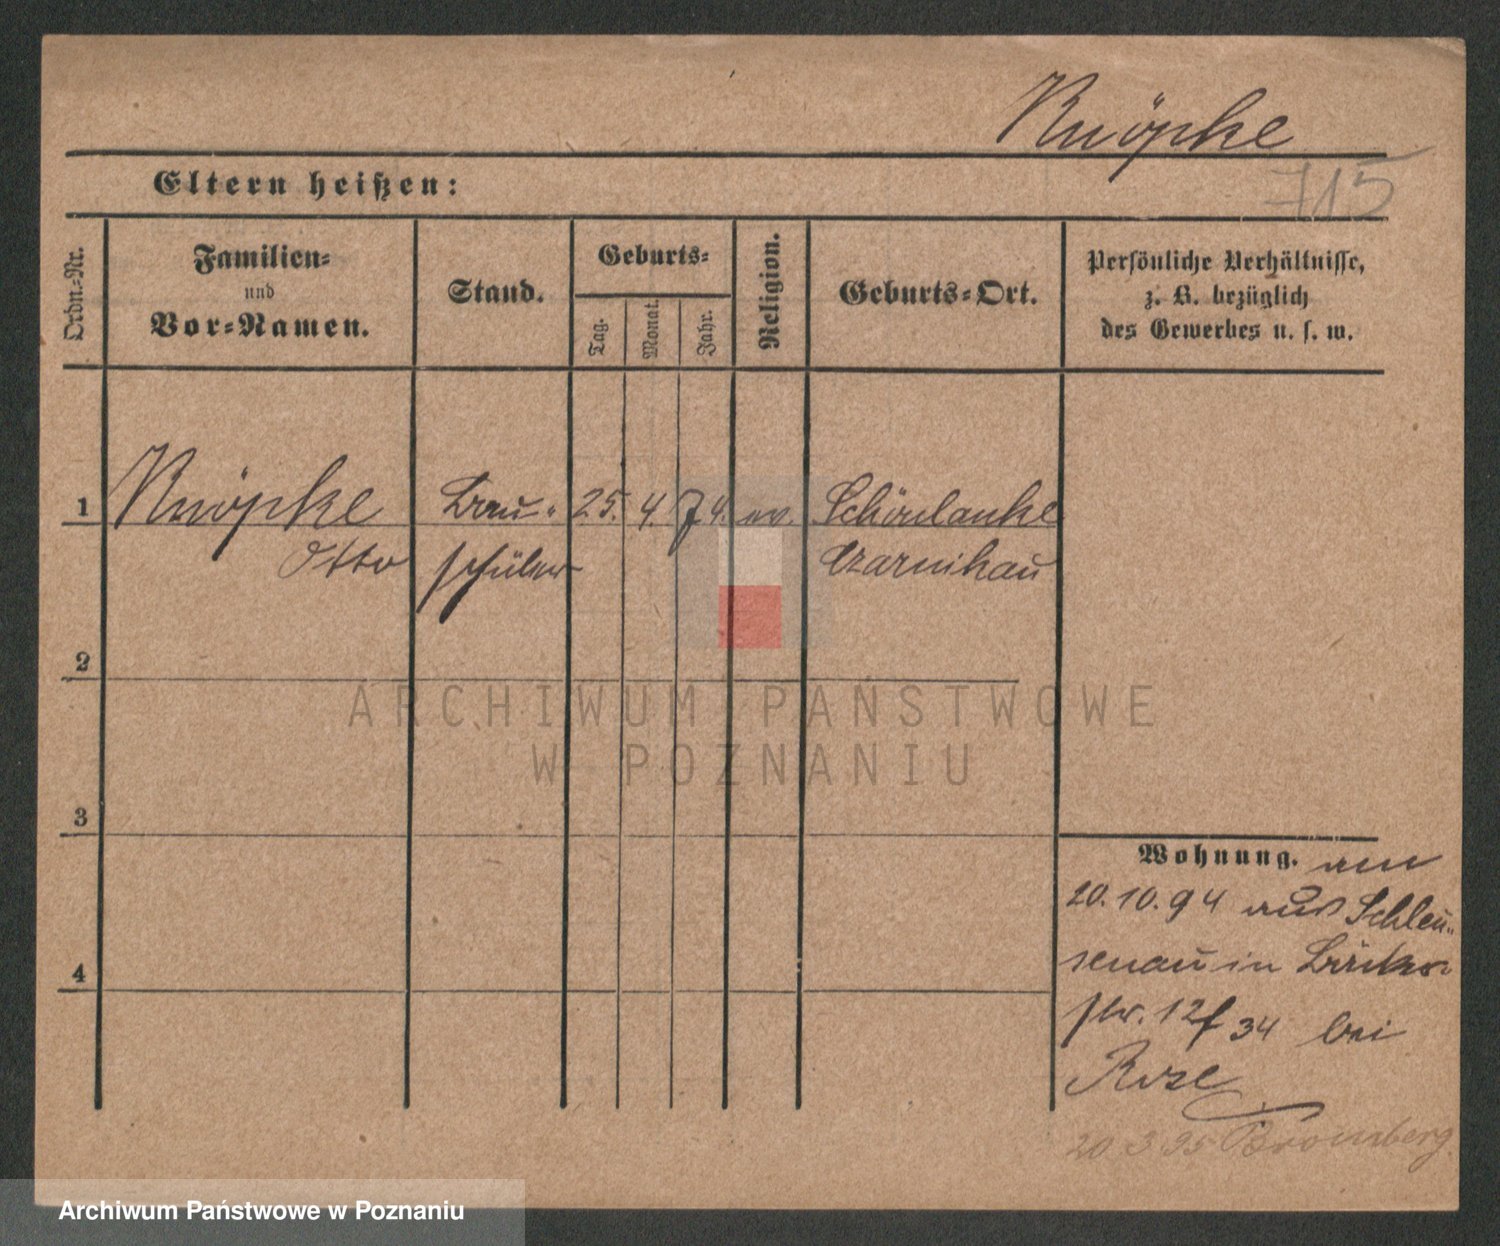 Knöpke
715
Eltern heißen:
Ordn.-Nr.
Familien-
und
Vor-Namen.
Stand.
Geburts-
Tag.
Monat.
Jahr.
Religion.
Geburts-Ort.
Persönliche Verhältnisse,
z. B. bezüglich
des Gewerbes u. s. w.
1 Knöpke Bau- 25. 4. 74. ev. Schönlanke
Otto schüler Czarnikau
2
ARCHIWUM PAŃSTWOWE
W POZNANIU
3
Wohnung. am
20.10.94 aus Schleu-
senau in Bäcker
str. 12/34 bei
Rose
20 3 95 Bromberg.
4
Archiwum Państwowe w Poznaniu